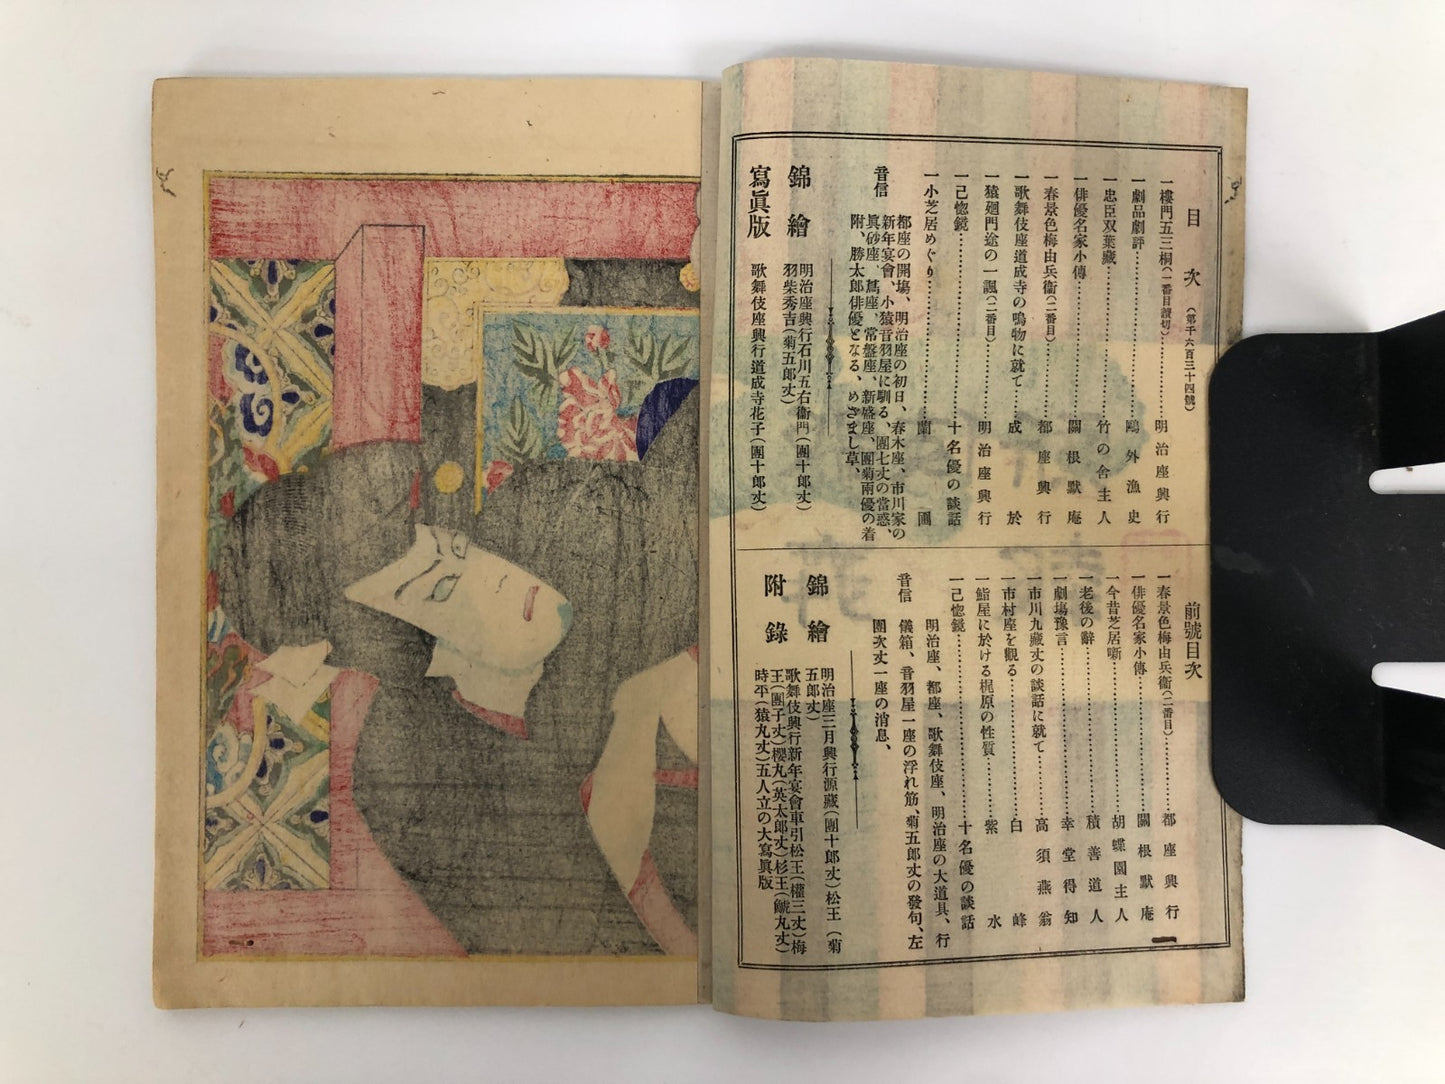 目次（第千六百三十四號）
一樓門五三桐（一番目讀切）…………明治座興行
一劇品劇評…………鷗外漁史
一忠臣双葉藏…………竹の舍主人
一俳優名家小傳…………關根默庵
一春景色梅由兵衞（二番目）…………都座興行
一歌舞伎座道成寺の鳴物に就て……成於
一猿廻門途の一諷（二番目）…………明治座興行
一己惚鏡…………十名優の談話
一小芝居めぐり…………蘭圃
音信
都座の開塲、明治座の初日、春木座、市川家の
新年宴會、小猿音羽屋に馴る、團七丈の當惑、
眞砂座、蔦座、常盤座、新盛座、團菊兩優の着
附、勝太郎俳優となる、めざまし草、
錦繪
明治座興行石川五右衞門（團十郎丈）
羽柴秀吉（菊五郎丈）
寫眞版
歌舞伎座興行道成寺花子（團十郎丈）
前號目次
一春景色梅由兵衞（二番目）…………都座興行
一俳優名家小傳…………關根默庵
一今昔芝居噺…………胡蝶園主人
一老後の辭…………積善道人
一劇塲豫言…………幸堂得知
一市川九藏丈の談話に就て……高須燕翁
一市村座を觀る…………白峰
一鮨屋に於ける梶原の性質……紫水
一己惚鏡…………十名優の談話
音信
明治座、都座、歌舞伎座、明治座の大道具、行
儀箱、音羽屋一座の浮れ筋、菊五郎丈の發句、左
團次丈一座の消息、
錦繪
明治座三月興行源藏（團十郎丈）松王（菊
五郎丈）
附錄
歌舞伎興行新年宴會車引松王（權三丈）梅
王（團子丈）櫻丸（英太郎丈）杉王（鯱丸丈）
時平（猿丸丈）五人立の大寫眞版